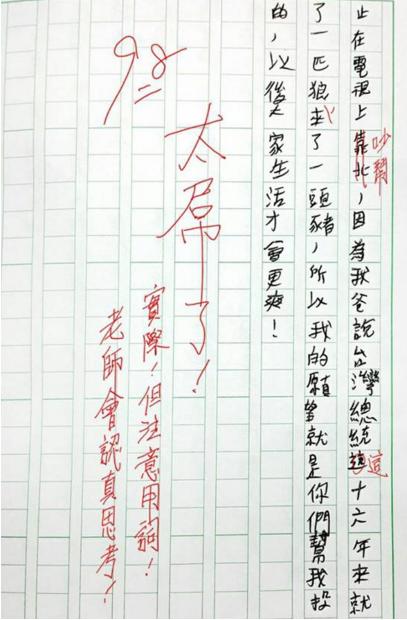 吵鬧
止在電視上靠北，因為我爸說台灣總統這十六年來就
這
了一匹狼走了一頭豬，所以我的願望就是你們幫我投
的，以後大家生活才會更爽！
98
太屌了！
實際！但注意用詞！
老師會認真思考！